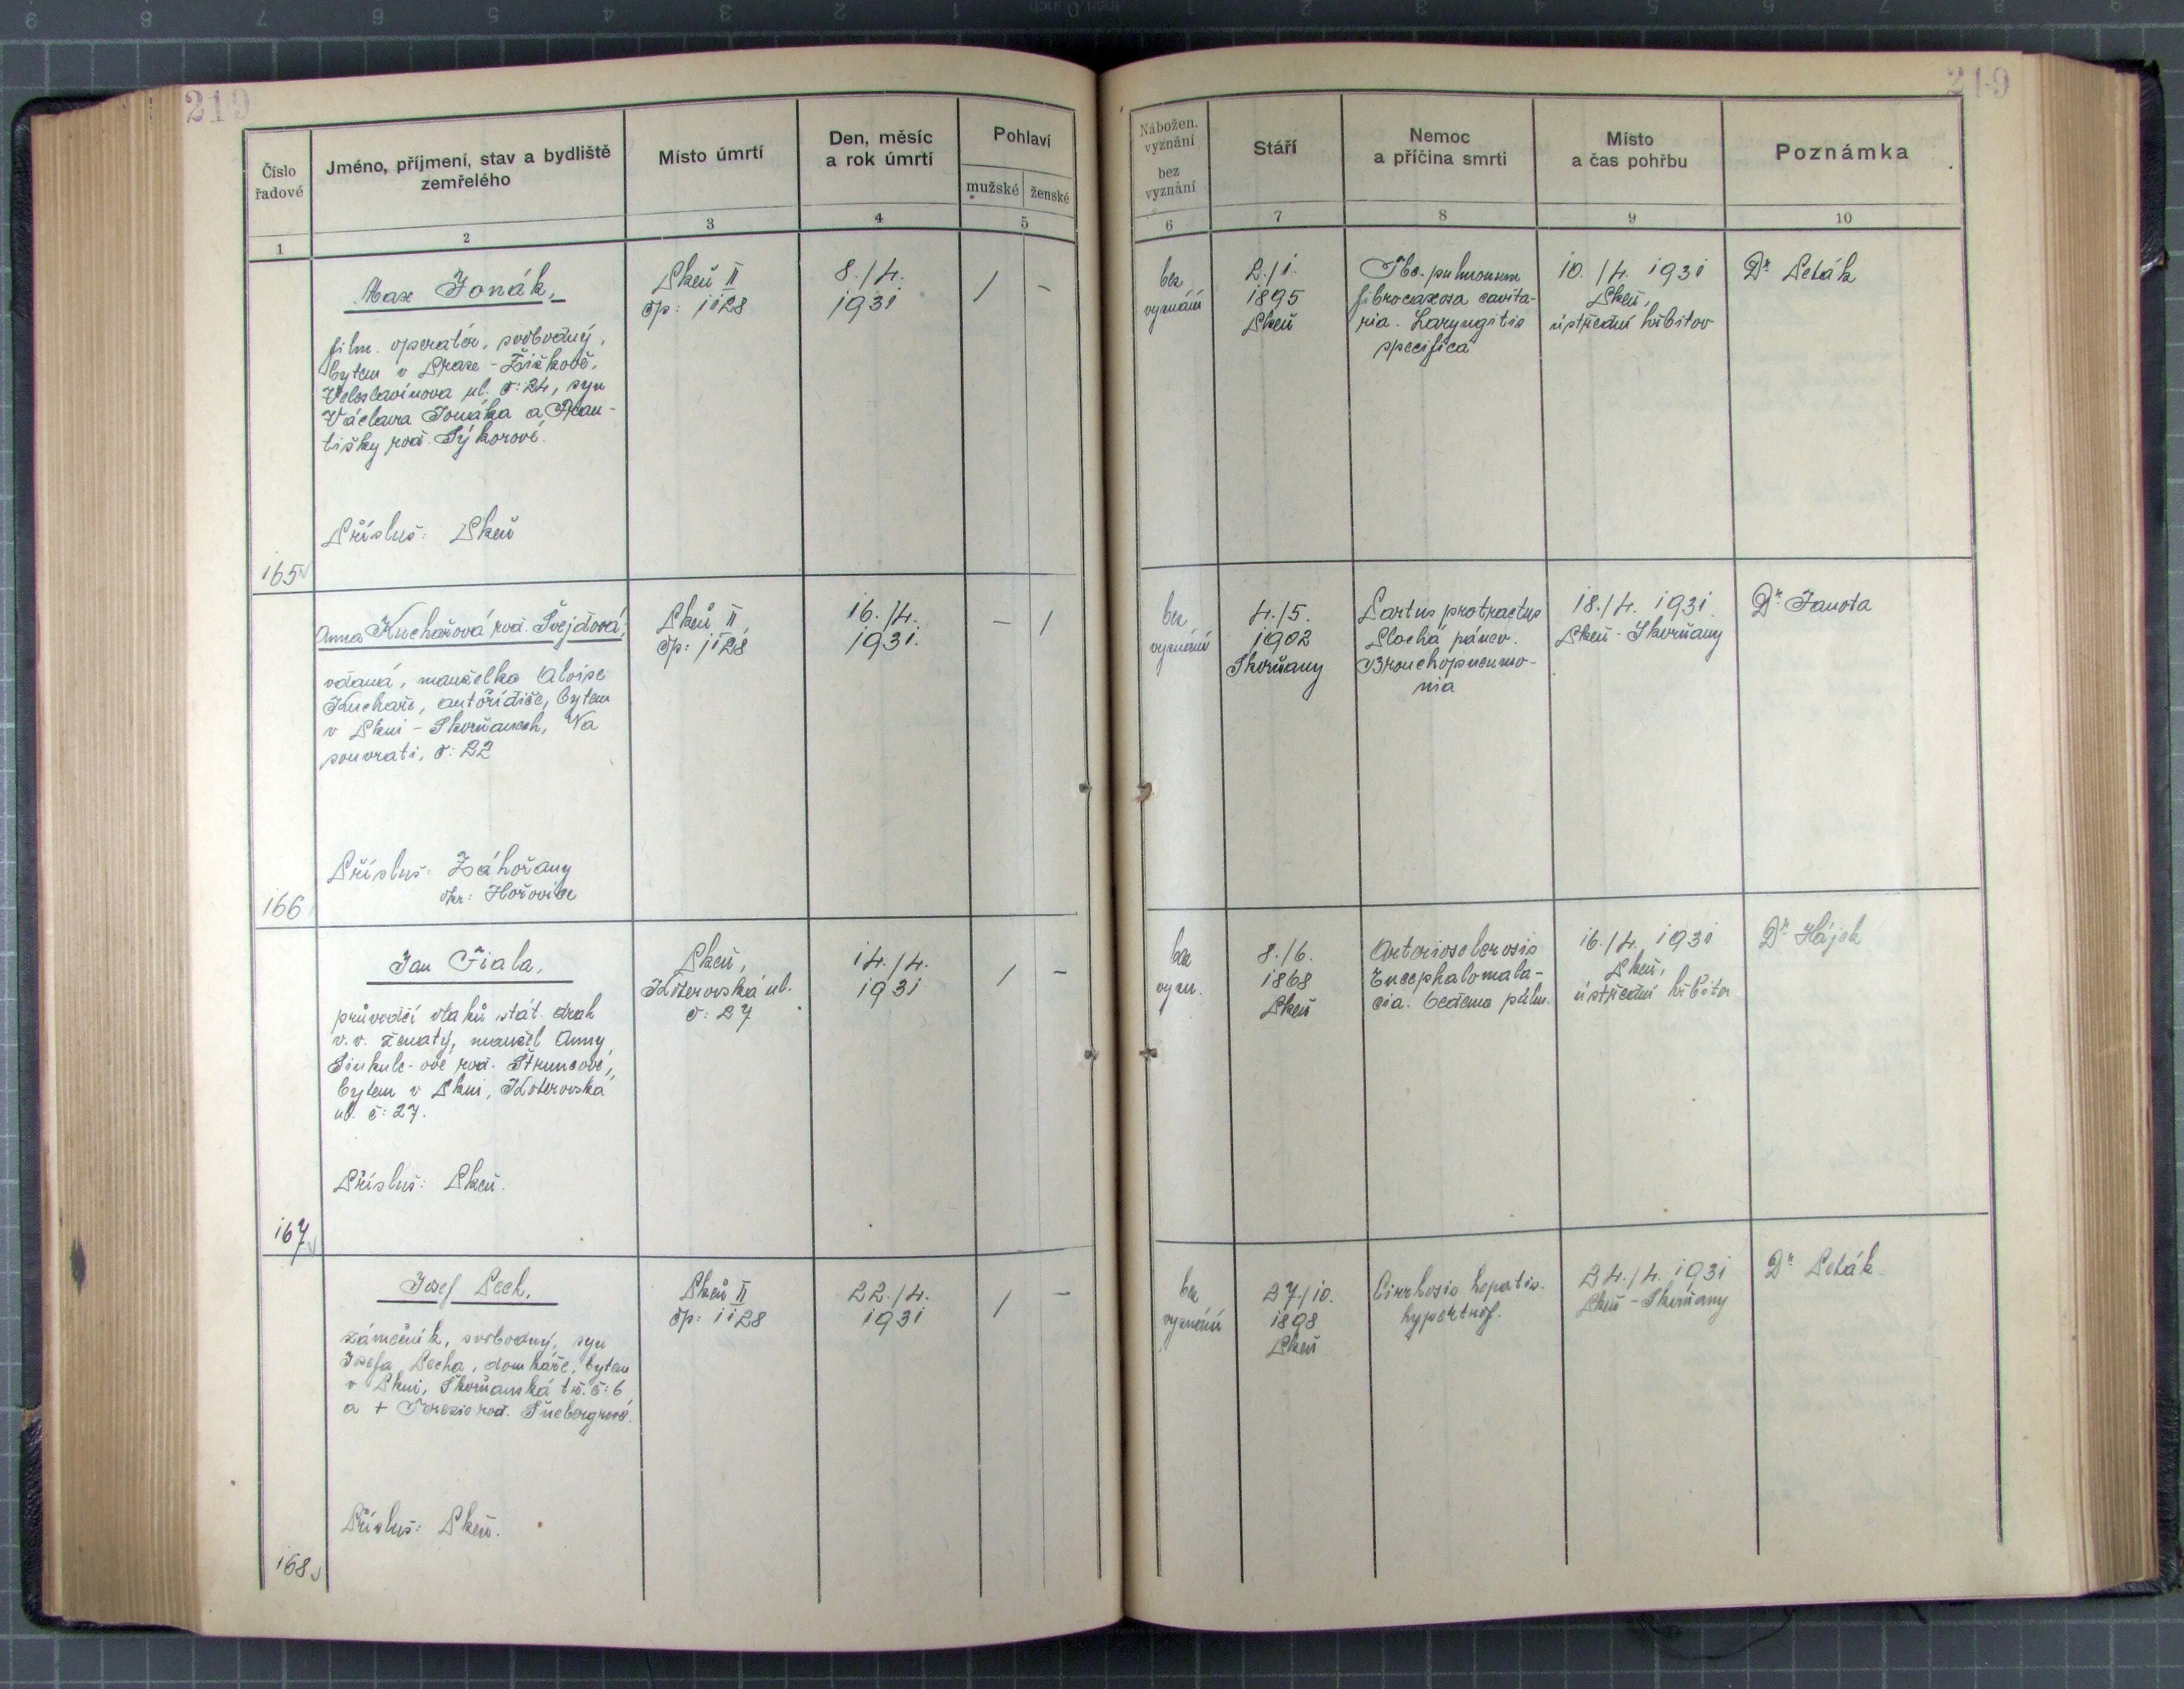 219
219
Číslo
řadové
Jméno, příjmení, stav a bydliště
zemřelého
Místo úmrtí
Den, měsíc
a rok úmrtí
Pohlaví
mužské
ženské
1
2
3
4
5
Nábožen.
vyznání
bez
vyznání
Stáří
Nemoc
a příčina smrti
Místo
a čas pohřbu
Poznámka
6
7
8
9
10
165
Max Jonák,
film. operatér, svobodný,
bytem v Praze - Žižkově,
Veleslavínova ul. č: 24, syn
Václava Jonáka a Fran-
tišky roz. Sýkorové.
Přísluš: Plzeň
Plzeň II
čp: 1128
8./4.
1931
/
-
bez
vyznání
2./1.
1895
Plzeň
Tbc. pulmonum
fibrocaseosa cavita-
ria. Laryngitis
specifica
10./4. 1931
Plzeň,
ústřední hřbitov
Dr Peták
166
Anna Kuchařová roz. Švejdová,
vdaná, manželka Aloise
Kuchaře, autořidiče, bytem
v Plzni - Skvrňanech, Na
souvrati, č: 22
Přísluš: Záhořany
okr: Hořovice
Plzeň II,
čp: 1128
16./4.
1931.
-
/
bez
vyznání
4./5.
1902
Skvrňany
Partus protractus
Plochá pánev.
Bronchopneumo-
nia
18./4. 1931
Plzeň - Skvrňany
Dr Janota
167
Jan Fiala,
průvodčí vlaků stát. drah
v. v. ženatý, manžel Anny
Sinkule-ové roz. Štruncové,
bytem v Plzni, Koterovská
ul. č: 27.
Přísluš: Plzeň.
Plzeň,
Koterovská ul.
č: 27
14./4.
1931
/
-
bez
vyzn.
8./6.
1868
Plzeň
Arteriosclerosis
Encephalomala-
cia. Oedema pulm.
16./4. 1931
Plzeň,
ústřední hřbitov
Dr Hájek
168
Josef Pech,
zámečník, svobodný, syn
Josefa Pecha, domkáře, bytem
v Plzni, Skvrňanská tř. č: 6
a + Terezie roz.
Přísluš: Plzeň.
Plzeň II
čp: 1128
22./4.
1931
/
-
bez
vyznání
27./10.
1898
Plzeň
Cirrhosis hepatis.
hypertrof.
24./4. 1931
Plzeň - Skvrňany
Dr Peták